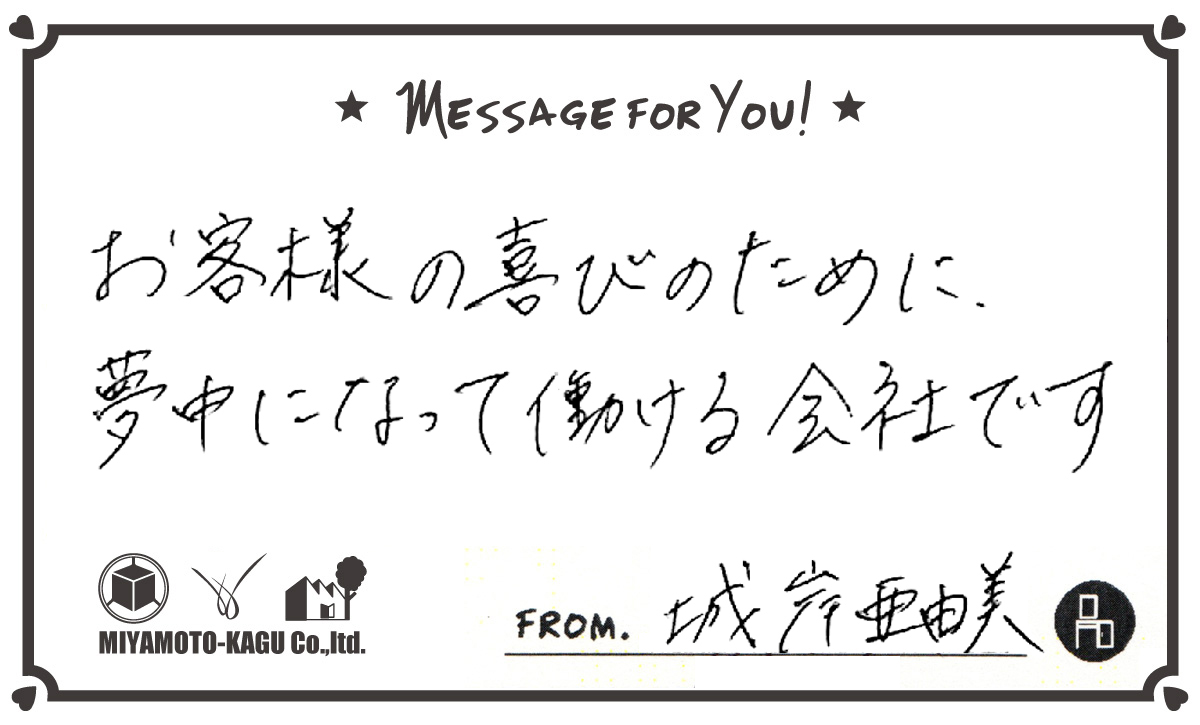 ★ MESSAGE FOR YOU! ★
お客様の喜びのために、
夢中になって働ける会社です
MIYAMOTO-KAGU Co.,ltd.
FROM. 城岸亜由美